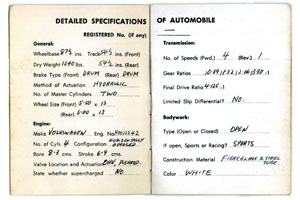 DETAILED SPECIFICATIONS
REGISTERED No. (if any)
General:
Wheelbase 87½ ins. Track 54½ ins. (Front)
Dry Weight 1090 lbs. 54½ ins. (Rear)
Brake Type (Front) DRUM (Rear) DRUM
Method of Actuation HYDRAULIC
No. of Master Cylinders TWO
Wheel Size (Front) 5.00 x 13
(Rear) 6.00 x 13
Engine:
Make VOLKSWAGEN Eng. No.
No. of Cyls. 4 Configuration HORIZONTALLY OPPOSED
Bore 8.3 cms. Stroke 6.9 cms.
Valve Location and Actuation
State whether supercharged NO
OF AUTOMOBILE
Transmission:
No. of Speeds (Fwd.) 4 (Rev.) 1
Gear Ratios
Final Drive Ratio 4.125.1
Limited Slip Differential? NO.
Bodywork:
Type (Open or Closed) OPEN
If open, Sports or Racing? SPORTS
Construction Material FIBERGLASS & STEEL TUBE.
Color WHITE